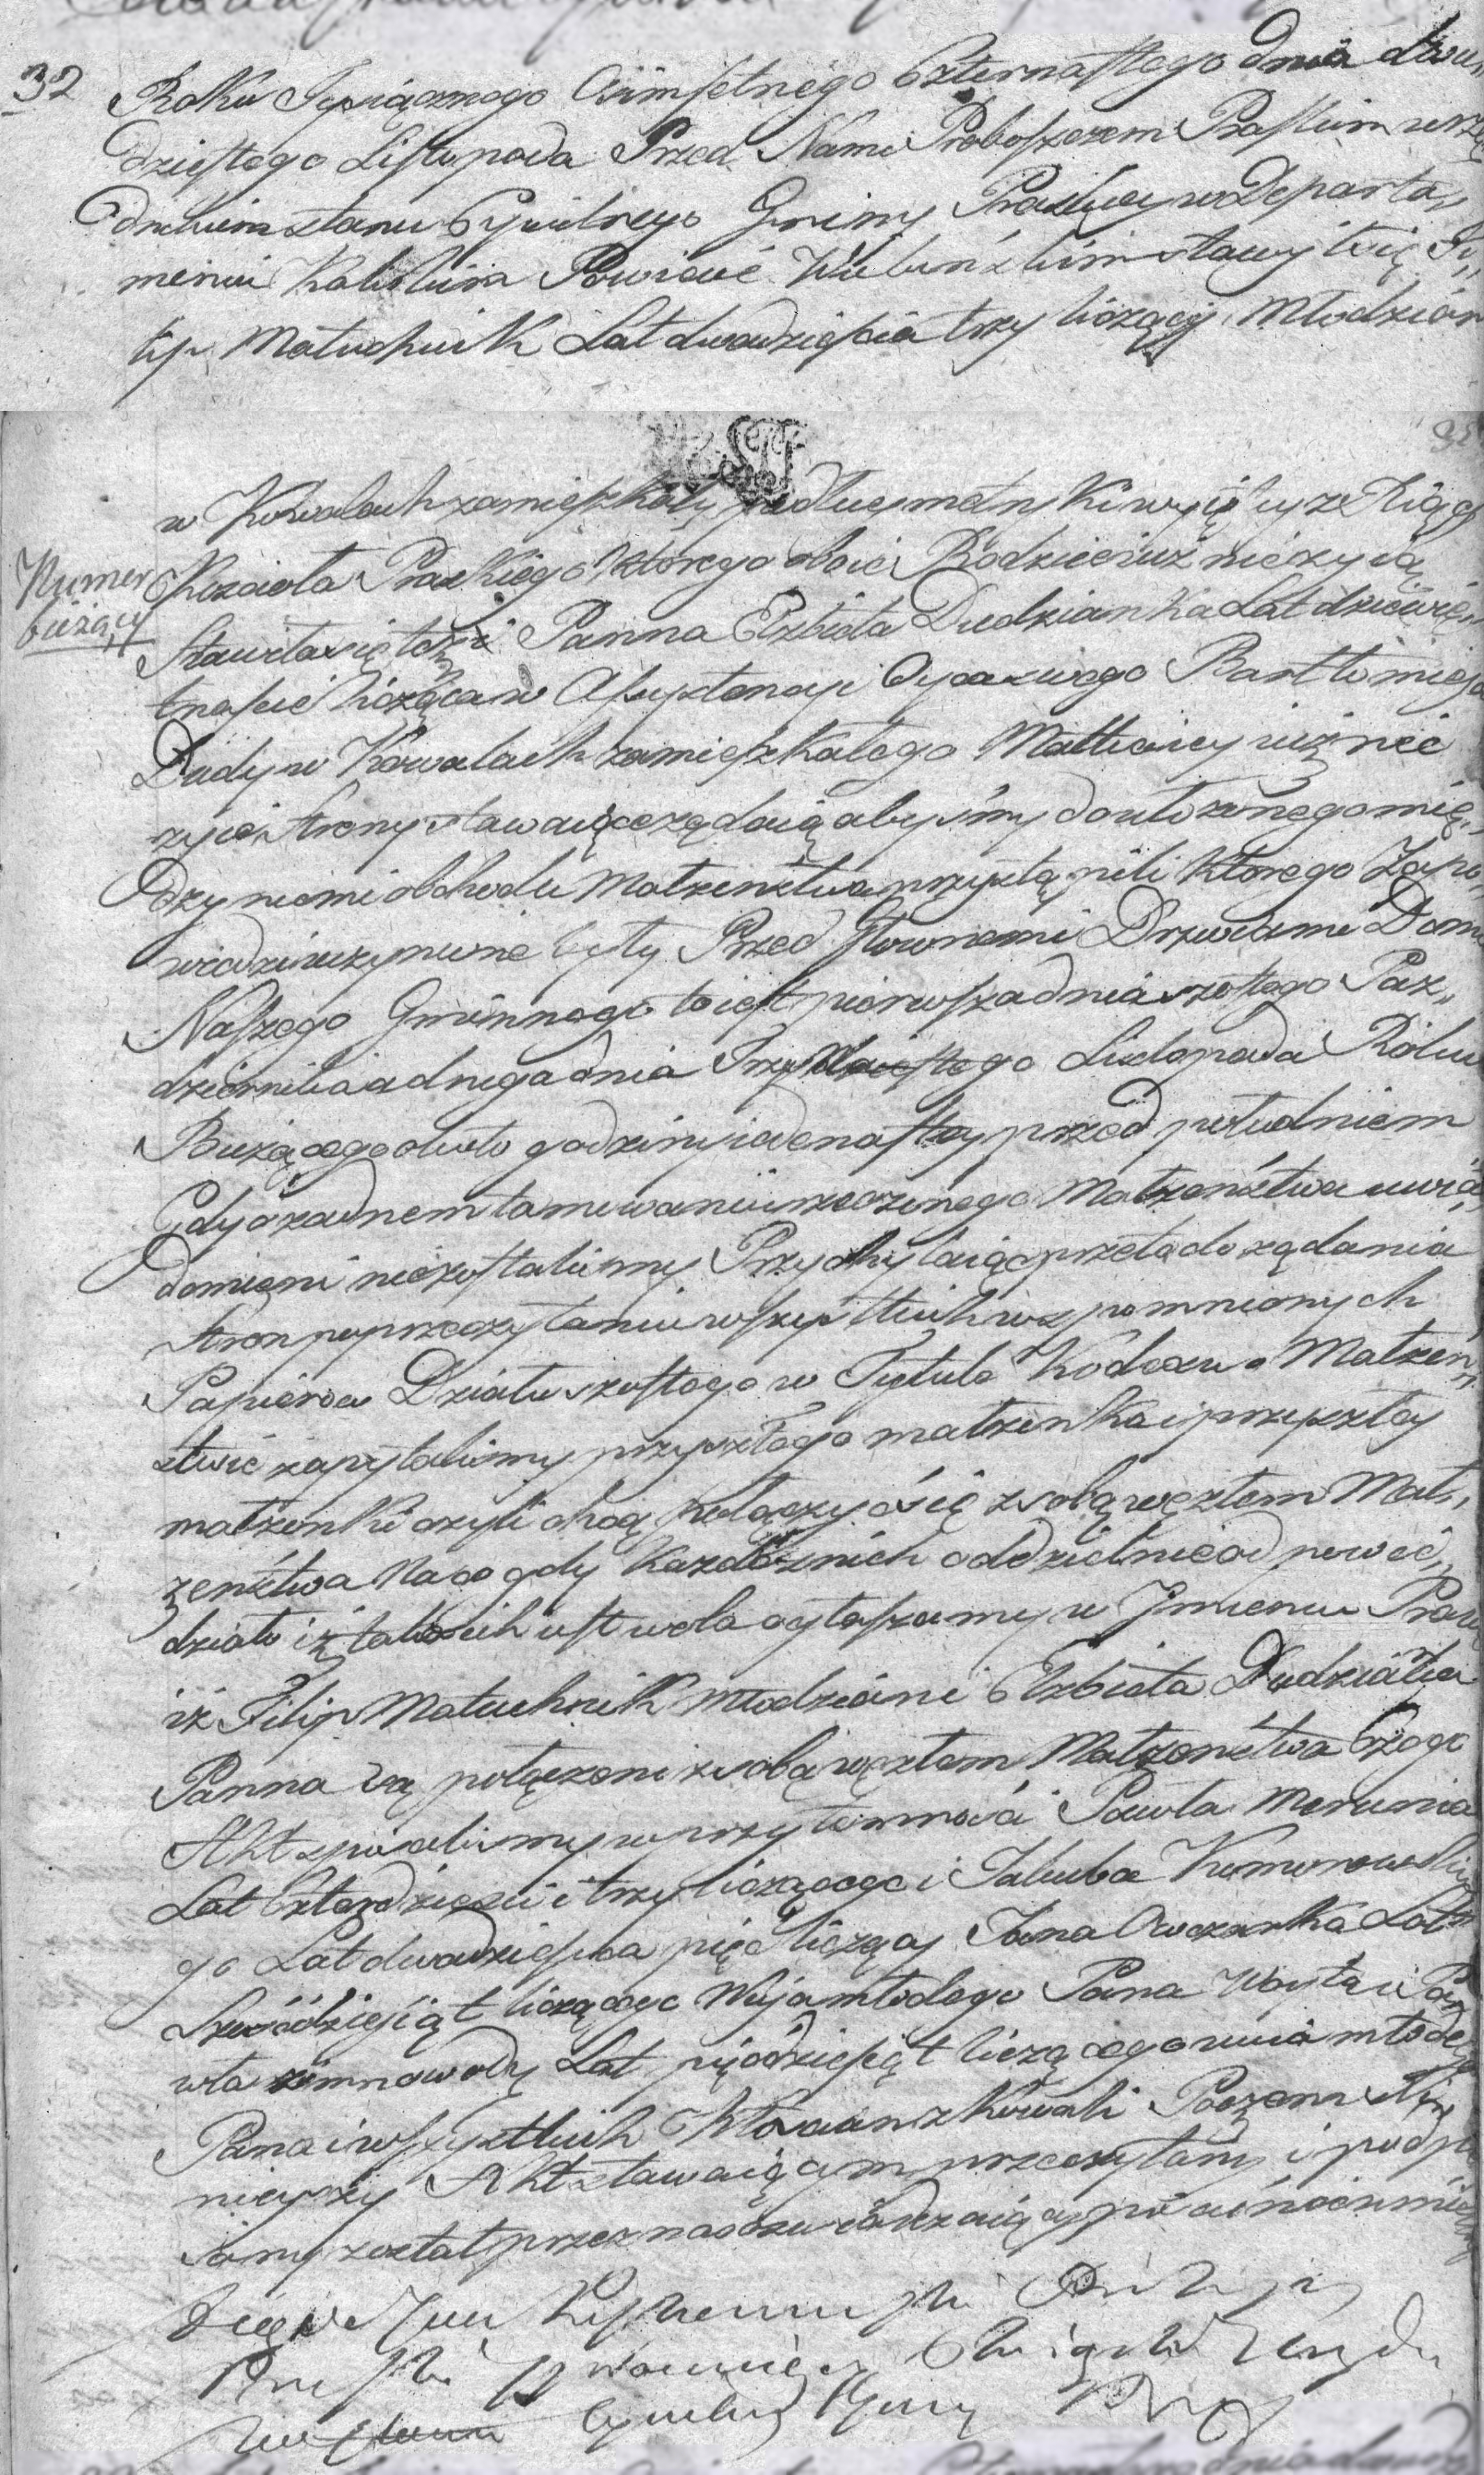 32
Roku Tysiącznego Ośimsetnego Czternastego Dnia dwu
dziestego Listopada Przed Nami Proboszczem Praskim urzę
dnikiem stanu Cywilnego Gminy Praskiey w Departa„
mencie Kaliskim Powiecie Wieluńskim stawił się Fi„
lip Matuchnik Lat dwadzieścia trzy liczący Młodzian
w Kowalach zamieszkały podług metryki wyiętey ze Xiąg
Numer
bieżący
Kościoła Praskiego ktorego oboie Rodzice iuż nieżyią
Stawiła się też Panna Elżbieta Dudzianka Lat dziewię„
tnaście licząca w Assystencyi Oyca swego Bartłomieja
Dudy w Kowalach zamieszkałego Matka iey iuż nie
żyie Strony stawaiące żądaią abyśmy do ułożonego mię„
dzy niemi obchodu Małżeństwa przystąpili ktorego Zapo
wiedzi uczynione były Przed Głownemi Drzwiami Domu
Naszego Gminnego to iest pierwsza dnia szostego Paz„
dziernika a druga dnia Listopada Roku
Bieżącego około godziny iedenastey przed południem
Gdy o żadnem tamowaniu rzeczonego Małżeństwa uwia„
domieni niezostaliśmy Przychylaiąc się przeto do żądania
Stron po przeczytaniu wszystkich wspomnionych
Papierow Działu szostego w Tytule Kodexu o Małżeń„
stwie zapytaliśmy przyszłego małżonka i przyszłey
małżonki czyli chcą połączyć się z sobą węzłem Mał„
żeństwa Na co gdy każde z nich oddzielnie odpowie„
działo iż taka ich iest wola ogłaszamy w Jmieniu Prawa
iż Filip Matuchnik młodzian i Elżbieta Dudzianka
Panna są połączeni z sobą węzłem Małżeństwa Czego
Akt spisaliśmy w przytomności Pawła Merunia
Lat Czterdzieści i trzy liczącego i Jakuba Komorowskie
go Lat dwadzieścia pięć liczący Jana Owczarka Lat
Sześćdziesiąt liczącego Wuja młodego Pana Woyta i Pa
wła zimnowody Lat pięćdziesiąt liczącego wuia młodego
Pana i wszystkich Włościan z Kowali Poczem Akt
nieyszy Akt stawaiącym przeczytany i podpi
sany został przez nas